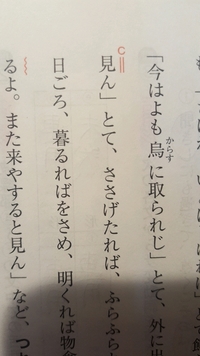 「今はよも烏に取られじ」とて、外に出
からす
c
見ん」とて、ささげたれば、ふらふらと
日ごろ、暮るればをさめ、明くれば物食
るよ。また来やすると見ん」など、つ